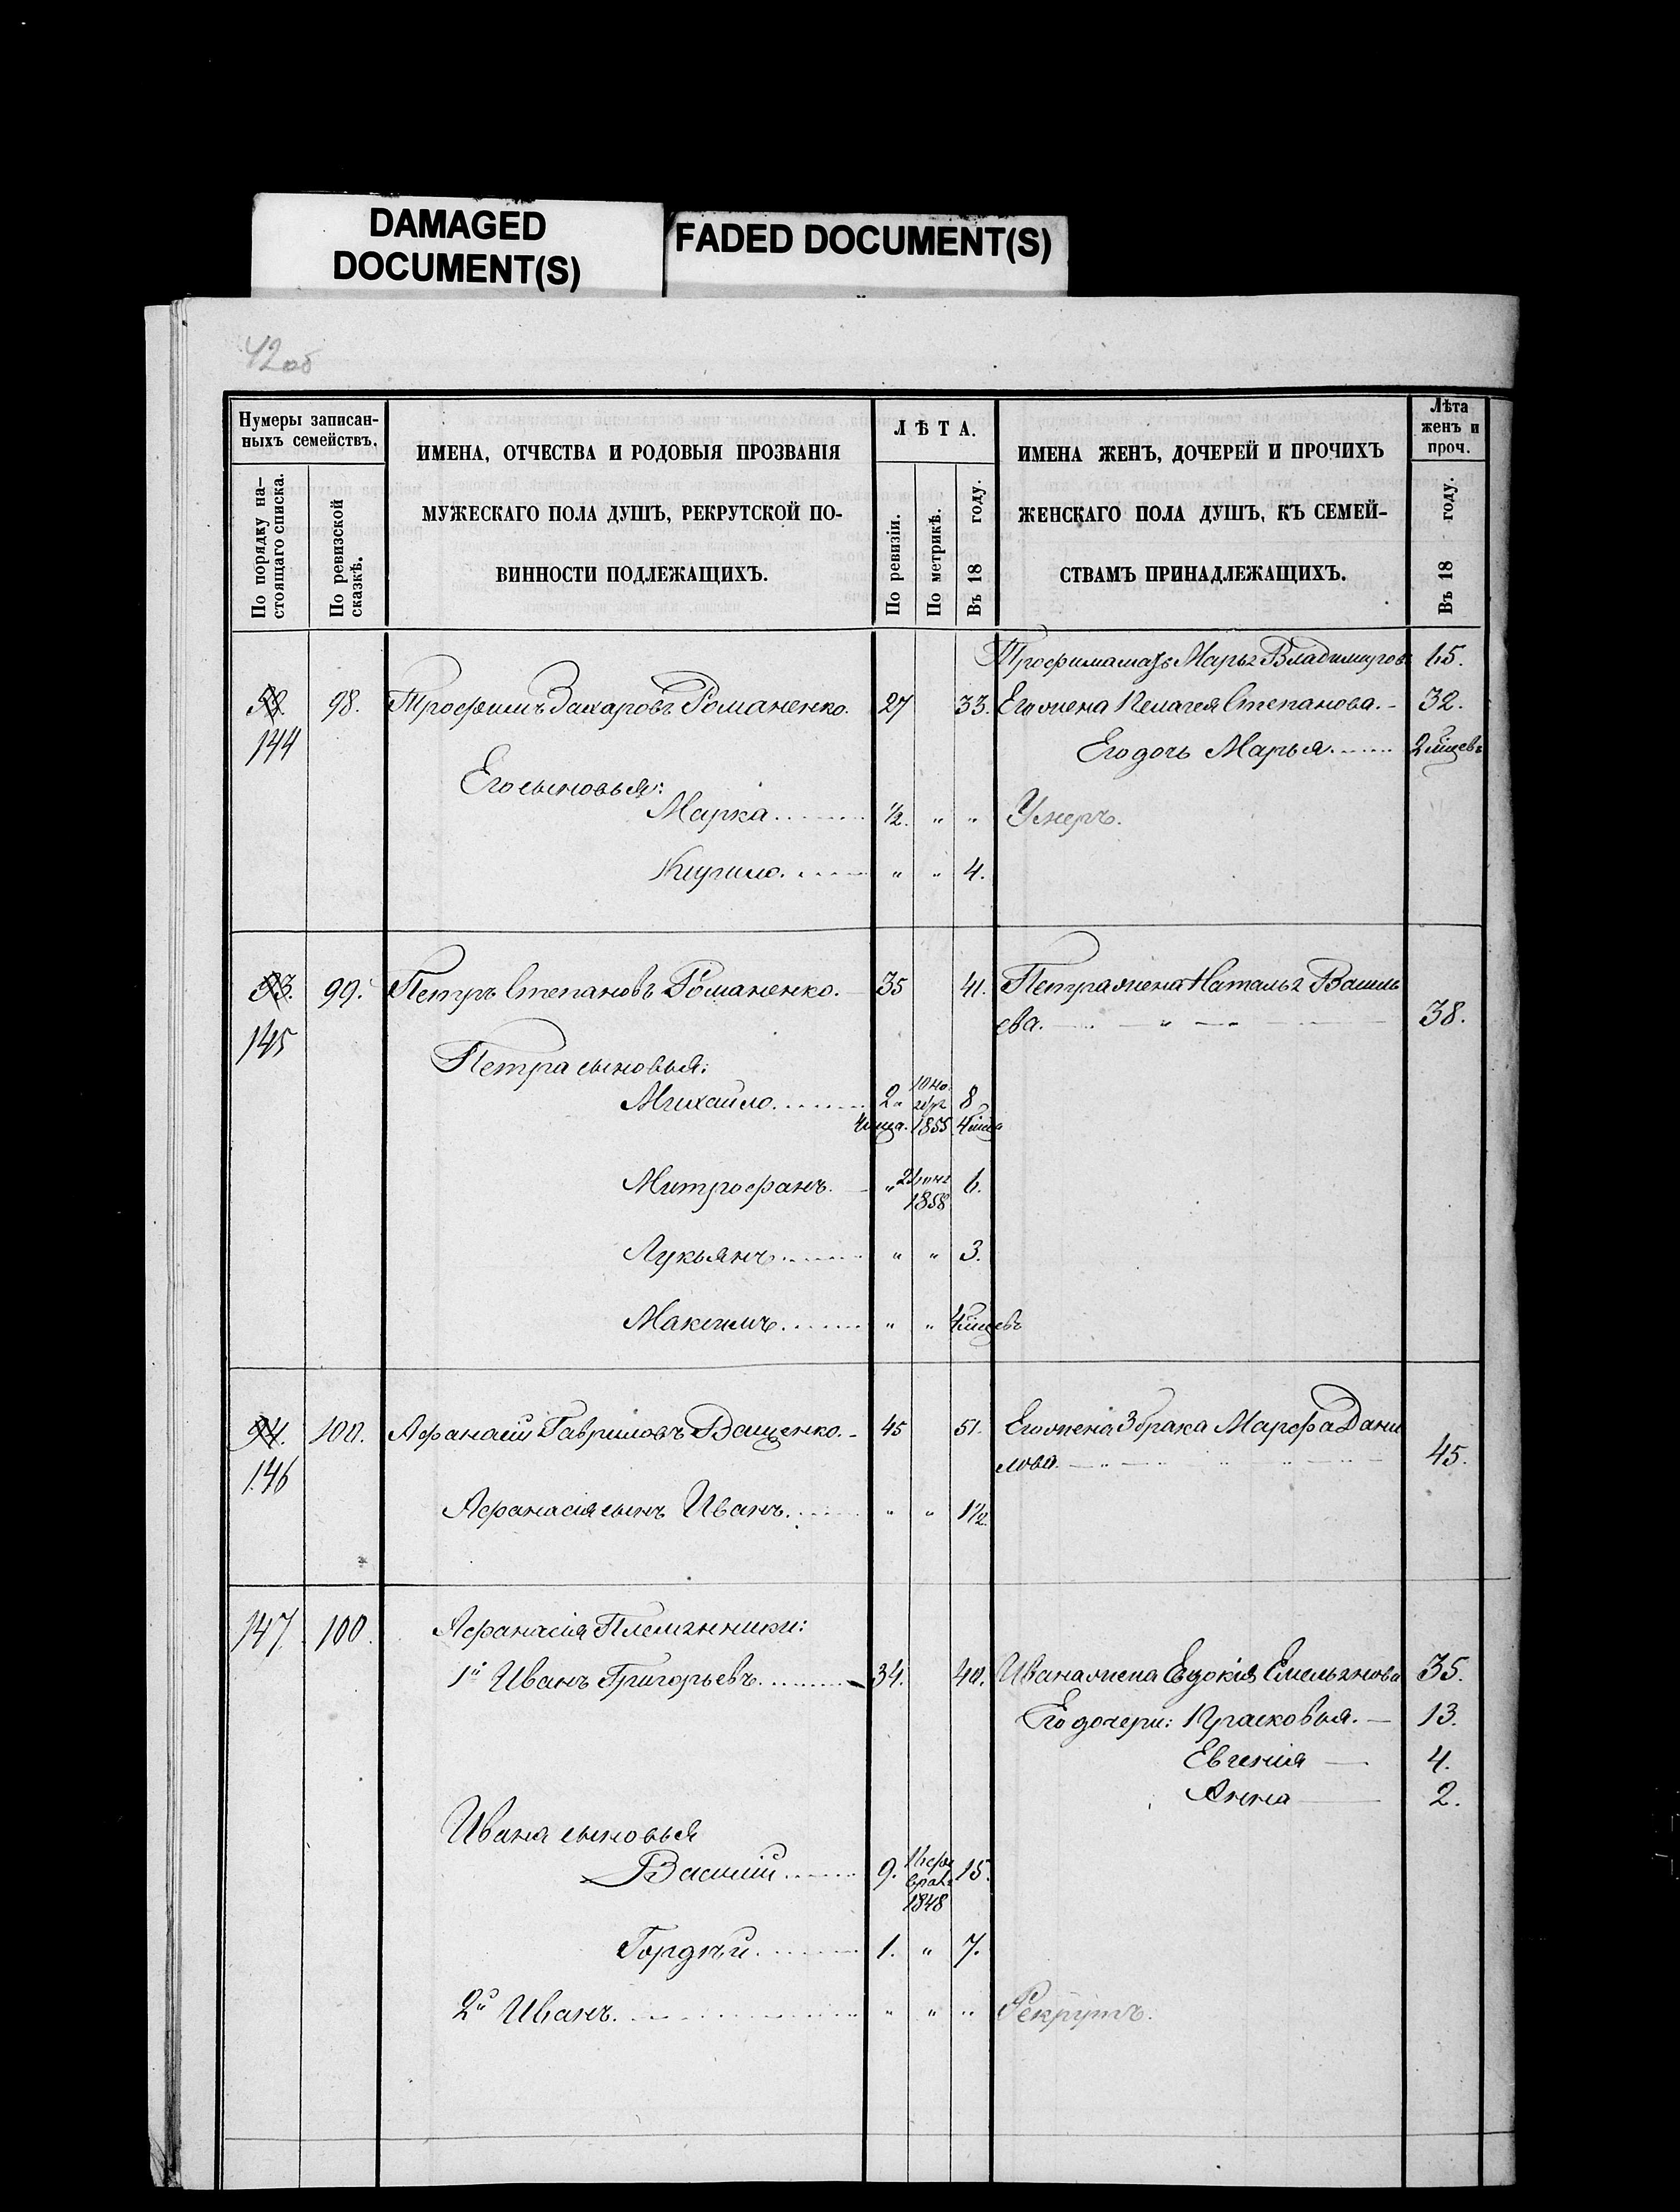 DAMAGED
DOCUMENT(S)
FADED DOCUMENT(S)
42об
Нумеры записан-
ныхъ семействъ.
По порядку на-
стоящаго списка.
По ревизской
сказкѣ.
ИМЕНА, ОТЧЕСТВА И РОДОВЫЯ ПРОЗВАНІЯ
МУЖЕСКАГО ПОЛА ДУШЪ, РЕКРУТСКОЙ ПО-
ВИННОСТИ ПОДЛЕЖАЩИХЪ.
ЛѢТА.
По ревизіи.
По метрикѣ.
Въ 18 году.
ИМЕНА ЖЕНЪ, ДОЧЕРЕЙ И ПРОЧИХЪ
ЖЕНСКАГО ПОЛА ДУШЪ, КЪ СЕМЕЙ-
СТВАМЪ ПРИНАДЛЕЖАЩИХЪ.
Лѣта
женъ и
проч.
Въ 18 году.
Трофима мать Марья Владимиров 65.
98. Трофимъ Захаровъ Романенко. 27 33. Его жена Пелагея Степанова. 32.
144 Его дочь Марья 2 мѣцевъ
Его сыновья:
Марка 1/2. " " Умеръ.
Кирило. " " 4.
93. 99. Петръ Степановъ Романенко. 35 41. Петра жена Наталья Василь
145 ева. 38.
Петра сыновья:
Михайло 2 и 10 но- 8
ября
4 мца. 1855 4 мца
Митрофанъ. " 1858 6.
Лукьянъ " " 3.
Максимъ " " 4 мѣцевъ
94. 100. Афанасій Гавриловъ Ващенко. 45 51. Его жена 3 брака Марфа Дани
146 лова. 45.
Афанасія сынъ Иванъ. " " 1 1/2.
147 100. Афанасія Племянники:
1й Иванъ Григорьевъ 34. 40. Ивана жена Евдокія Емельянова 35.
Его дочери: Прасковья. 13.
Евгенія 4.
Анна 2.
Ивана сыновья
Василій 9. фе- 15.
врал.
1848
Гордѣй 1. " 7.
2й Иванъ. " " " Рекрутъ.